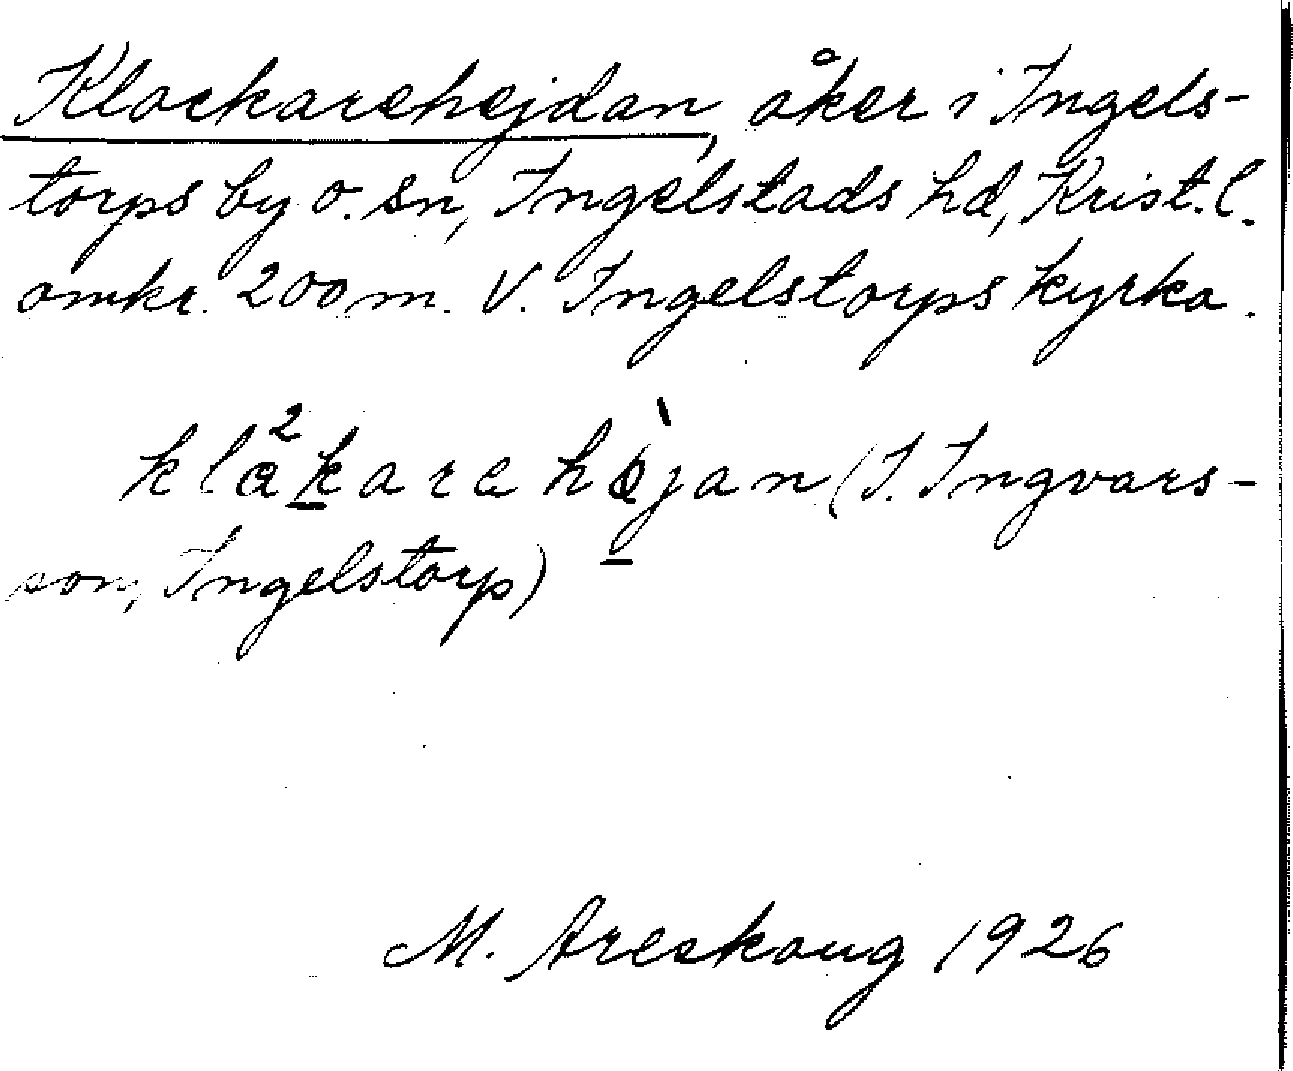 Klockarehejdan, åker i Ingels-
torps by o. sn, Ingelstads hd, Krist. l.
omkr. 200 m. V. Ingelstorps kyrka.
(I. Ingvars-
son, Ingelstorp)
M. Areskoug 1926